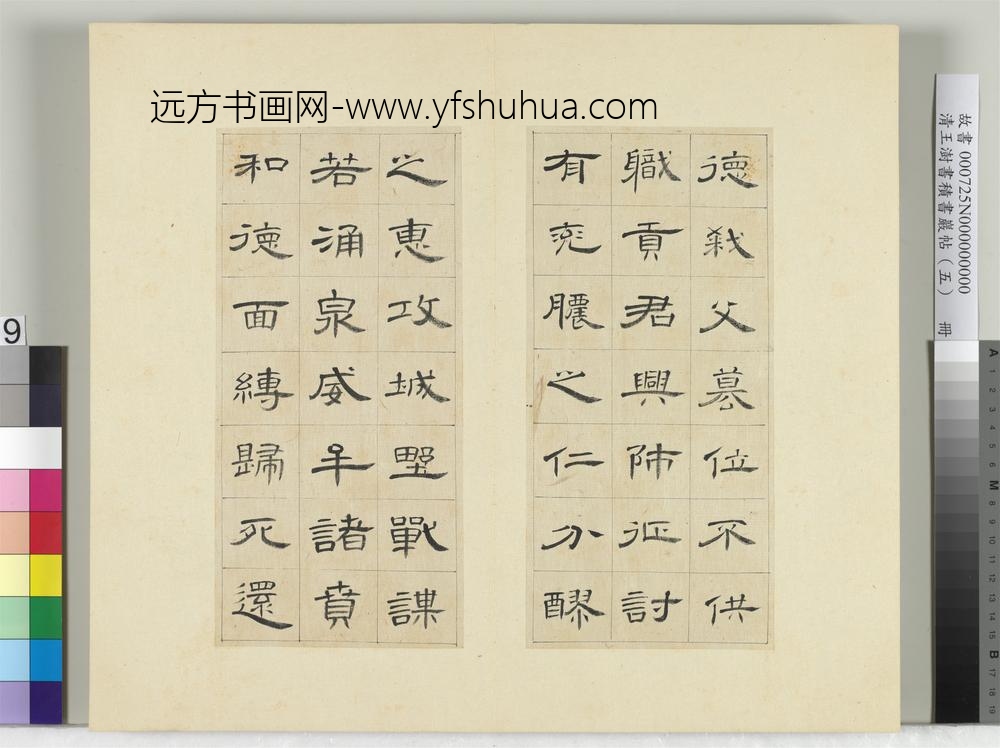 远方书画网-www.yfshuhua.com
德弑父墓位不供
職貢君興師征討
有兖膿之仁分醪
之惠攻城野戰謀
若涌泉威牟諸賁
和德面縛歸死還
故書000725N000000000
清王澍書積書巖帖（五） 冊
9
A 1 2 3 4 5 6 M 8 9 10 11 12 13 14 15 B 17 18 19